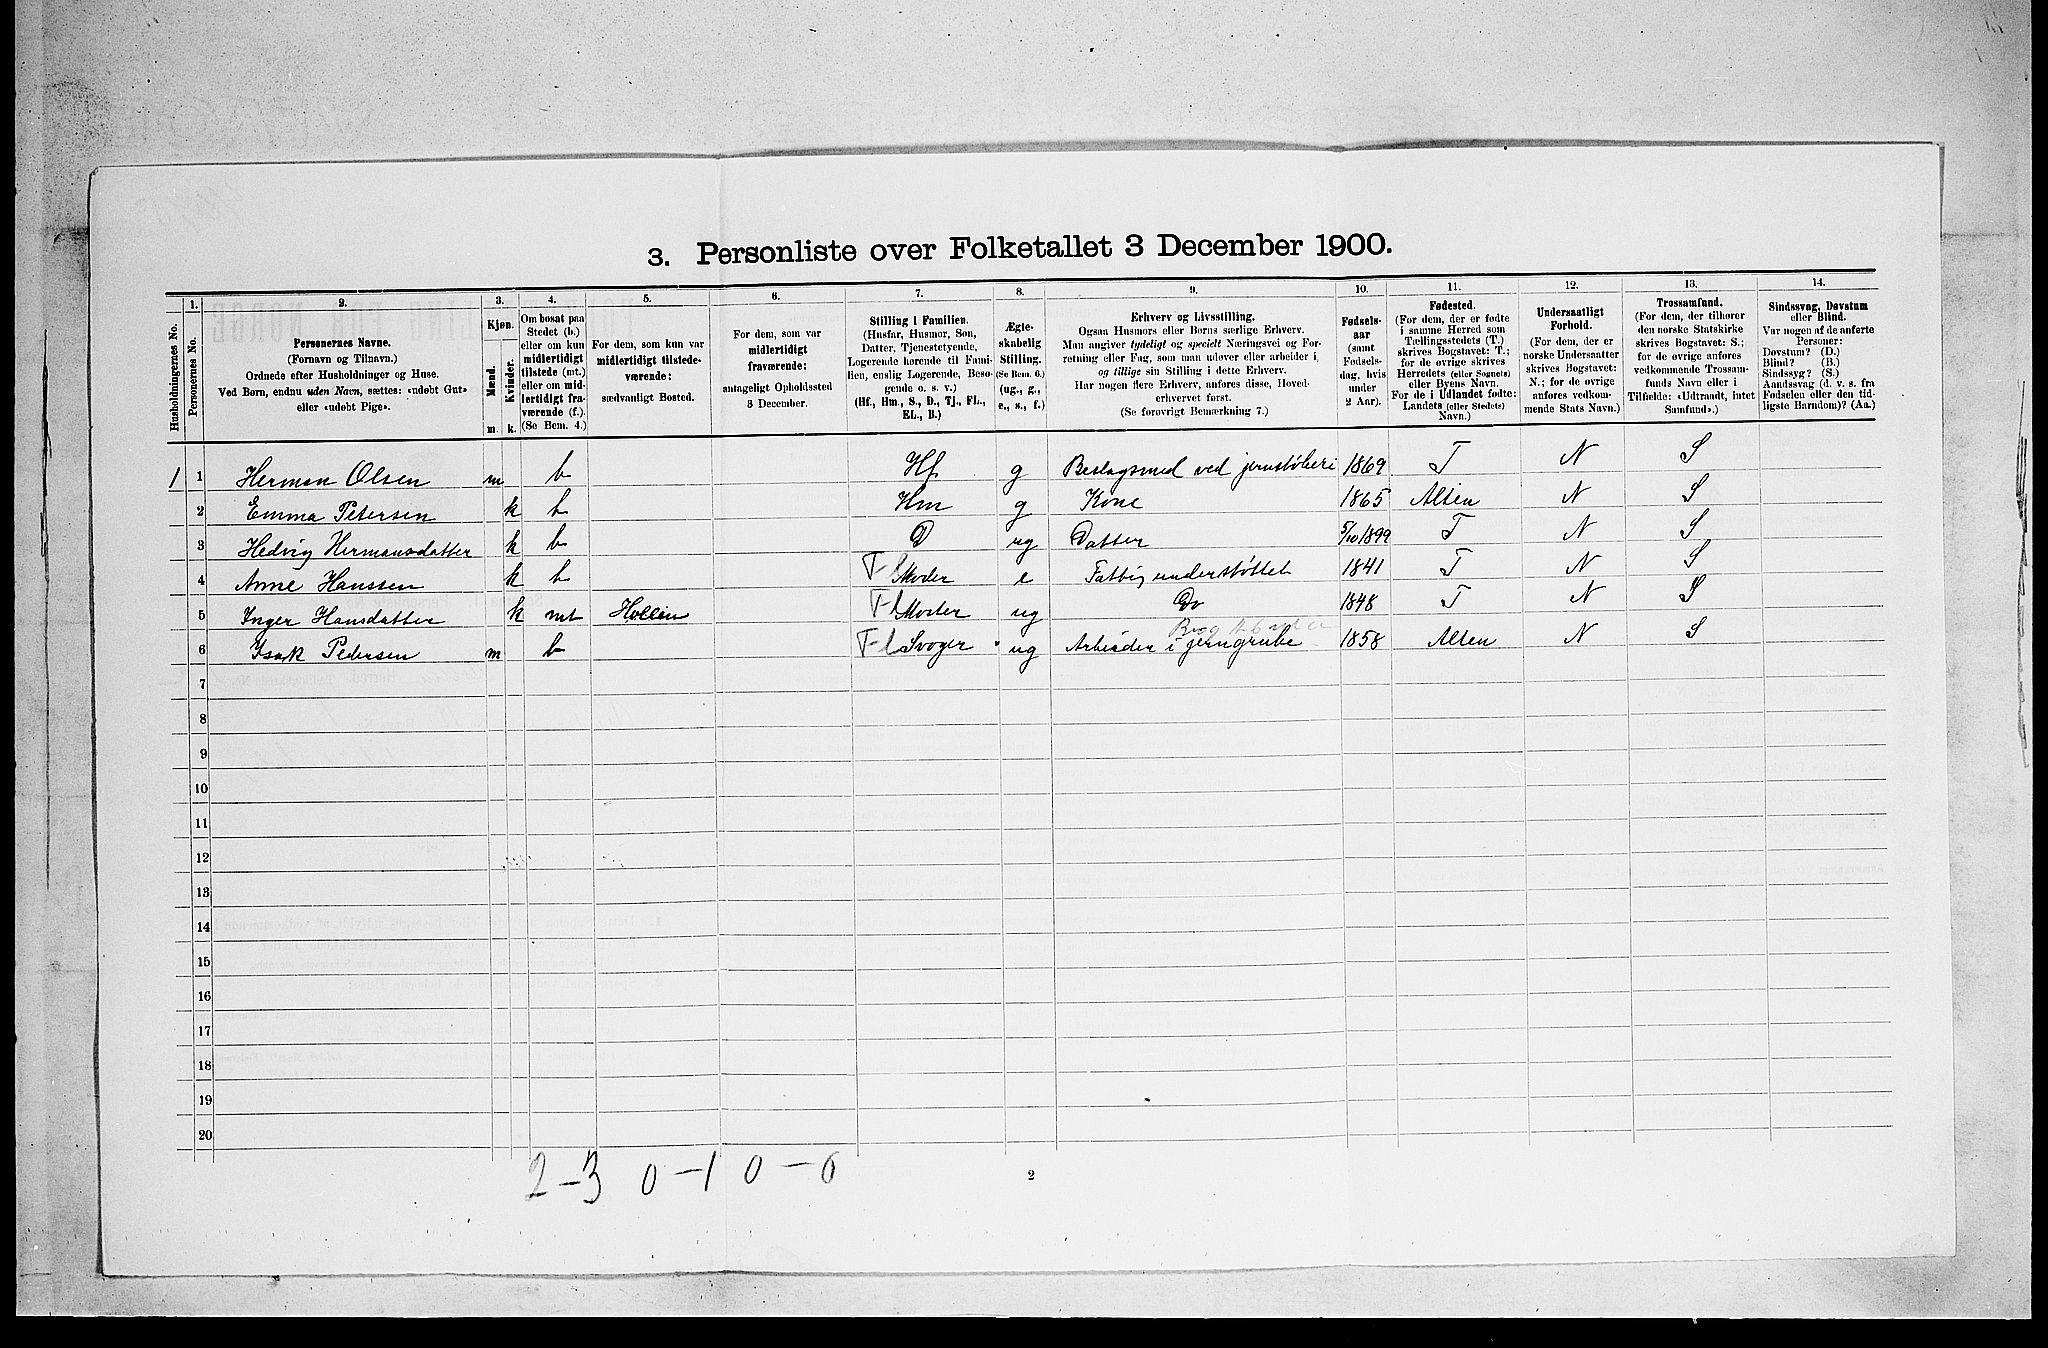 3. Personliste over Folketallet 3 December 1900.
Husholdningernes No.
1. Personernes No.
2. Personernes Navne. (Fornavn og Tilnavn.) Ordnede efter Husholdninger og Huse. Ved Børn, endnu uden Navn, sættes: «udøbt Gut» eller «udøbt Pige».
3. Kjøn. Mænd. m. Kvinder. k.
4. Om bosat paa Stedet (b.) eller om kun midlertidigt tilstede (mt.) eller om midlertidigt fraværende (f.) (Se Bem. 4.)
5. For dem, som kun var midlertidigt tilstedeværende: sædvanligt Bosted.
6. For dem, som var midlertidigt fraværende: antageligt Opholdssted 3 December.
7. Stilling i Familien. (Husfar, Husmor, Søn, Datter, Tjenestetyende, Logerende hørende til Familien, enslig Logerende, Besøgende o. s. v.) (Hf., Hm., S., D., Tj., FL., EL., B.)
8. Ægteskabelig Stilling. (Se Bem. 6.) (ug., g., e., s., f.)
9. Erhverv og Livsstilling. Ogsaa Husmors eller Børns særlige Erhverv. Man angiver tydeligt og specielt Næringsvei og Forretning eller Fag, som man udøver eller arbeider i, og tillige sin Stilling i dette Erhverv. Har nogen flere Erhverv, anføres disse, Hovederhvervet først. (Se forøvrigt Bemærkning 7.)
10. Fødselsaar (samt Fødselsdag, hvis under 2 Aar).
11. Fødested. (For dem, der er fødte i samme Herred som Tællingsstedets (T.) skrives Bogstavet: T.; for de øvrige skrives Herredets (eller Sognets) eller Byens Navn. For de i Udlandet fødte: Landets (eller Stedets) Navn.)
12. Undersaatligt Forhold. (For dem, der er norske Undersaatter skrives Bogstavet: N.; for de øvrige anføres vedkommende Stats Navn.)
13. Trossamfund. (For dem, der tilhører den norske Statskirke skrives Bogstavet: S.; for de øvrige anføres vedkommende Trossamfunds Navn eller i Tilfælde: «Udtraadt, intet Samfund».)
14. Sindssvag, Døvstum eller Blind. Var nogen af de anførte Personer: Døvstum? (D.) Blind? (B.) Sindssyg? (S.) Aandssvag (d. v. s. fra Fødselen eller den tidligste Barndom)? (Aa.)
1 1 Herman Olsen m b Hf g Beslagsmed ved jernstøberi 1869 T N S
2 Emma Petersen k b Hm g Kone 1865 Alten N S
3 Hedvig Hermansdatter k b D ug Datter 5/10 1899 T N S
4 Anne Hanssen k b Fl Moder e Fattigunderstøttet 1841 T N S
5 Inger Hansdatter k mt Hollen Fl Moster ug Do 1848 T N S
6 Isak Pedersen m b Fl Svoger ug Arbeider i jerngrube 1858 Alten N S
7
8
9
10
11
12
13
14
15
16
17
18
19
20
2-3 0-1 0-0
2